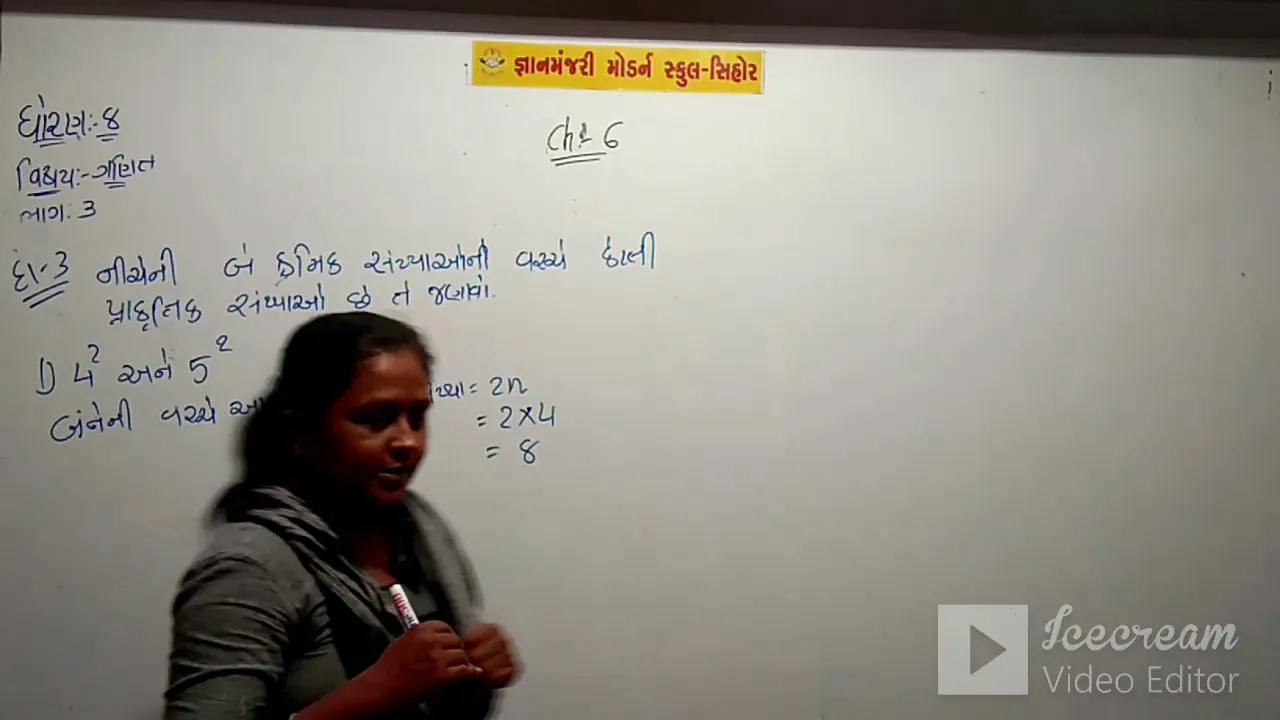 જ્ઞાનમંજરી મોડર્ન સ્કુલ-સિહોર
ધોરણ:-૪
Ch:- 6
વિષય:- ગણિત
ભાગ: 3
દા.-3 નીચેની બે ક્રમિક સંખ્યાઓની વચ્ચે કેટલી
પ્રાકૃતિક સંખ્યાઓ છે તે જણાવો.
1) 4² અને 5²
બંનેની વચ્ચે = 2n
= 2×4
= 8
Icecream
Video Editor